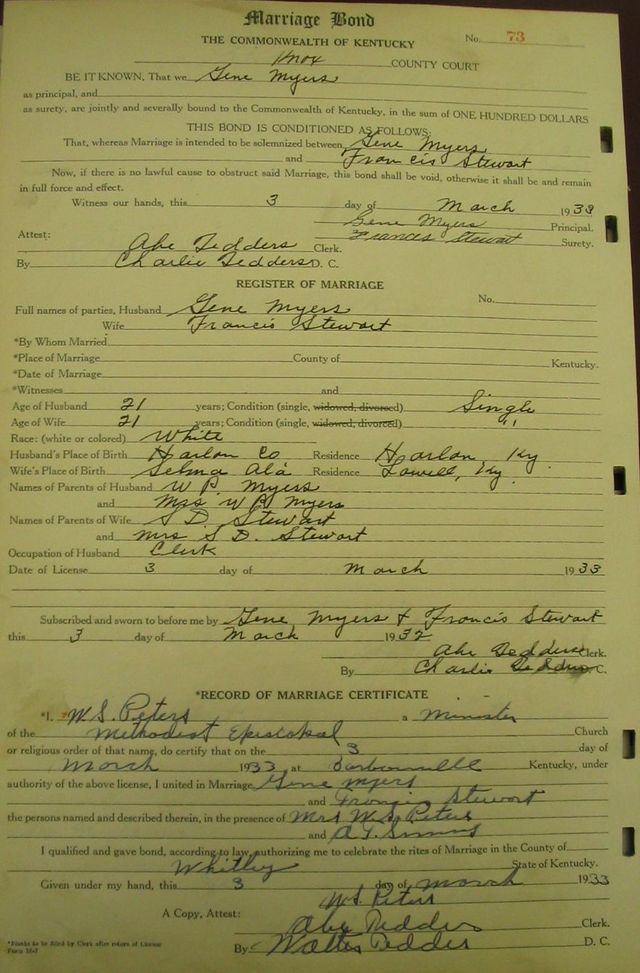 Marriage Bond
THE COMMONWEALTH OF KENTUCKY No. 73
Knox COUNTY COURT
BE IT KNOWN, That we Gene Myers
as principal, and
as surety, are jointly and severally bound to the Commonwealth of Kentucky, in the sum of ONE HUNDRED DOLLARS
THIS BOND IS CONDITIONED AS FOLLOWS:
That, whereas Marriage is intended to be solemnized between Gene Myers
and Francis Stewart
Now, if there is no lawful cause to obstruct said Marriage, this bond shall be void, otherwise it shall be and remain
in full force and effect.
Witness our hands, this 3 day of March 1933
Gene Myers Principal.
Attest: Frances Stewart Surety.
Abe Tedders Clerk.
By Charlie Tedders D. C.
REGISTER OF MARRIAGE
Full names of parties, Husband Gene Myers No.
Wife Francis Stewart
*By Whom Married
*Place of Marriage County of Kentucky.
*Date of Marriage
*Witnesses and
Age of Husband 21 years; Condition (single, widowed, divorced) Single
Age of Wife 21 years; Condition (single, widowed, divorced) "
Race: (white or colored) White
Husband's Place of Birth Harlan Co Residence Harlan, Ky.
Wife's Place of Birth Selma Ala Residence Lowell, Ky.
Names of Parents of Husband W P. Myers
and Mrs W P. Myers
Names of Parents of Wife S D. Stewart
and Mrs S D. Stewart
Occupation of Husband Clerk
Date of License 3 day of March 1933
Subscribed and sworn to before me by Gene Myers & Francis Stewart
this 3 day of March 1932
Abe Tedders Clerk.
By Charlie Tedders D. C.
*RECORD OF MARRIAGE CERTIFICATE
*I, W. S. Peters a Minister
of the Methodist Episcopal Church
or religious order of that name, do certify that on the 3 day of
March 1933 at Barbourville Kentucky, under
authority of the above license, I united in Marriage Gene Myers
and Francis Stewart
the persons named and described therein, in the presence of Mrs W. S. Peters
and
I qualified and gave bond, according to law, authorizing me to celebrate the rites of Marriage in the County of
Whitley State of Kentucky.
Given under my hand, this 3 day of March 1933
W. S. Peters
A Copy, Attest: Abe Tedders Clerk.
By Walter Tedders D. C.
*Blanks to be filled by Clerk after return of License